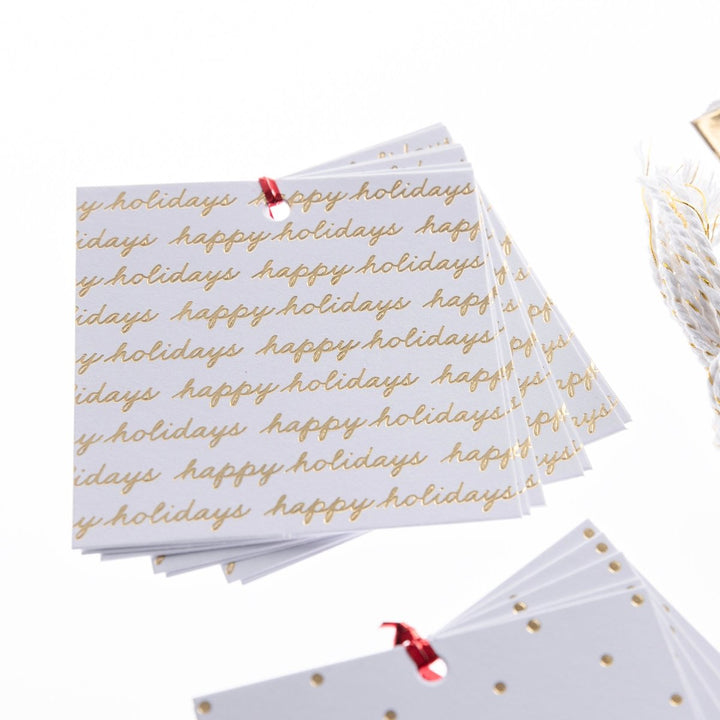 y holidays happy holidays
idays happy holidays happ
y holidays happy holidays
idays happy holidays happ
y holidays happy holidays
lidays happy holidays happ
y holidays happy holidays
lidays happy holidays happ
y holidays happy holidays